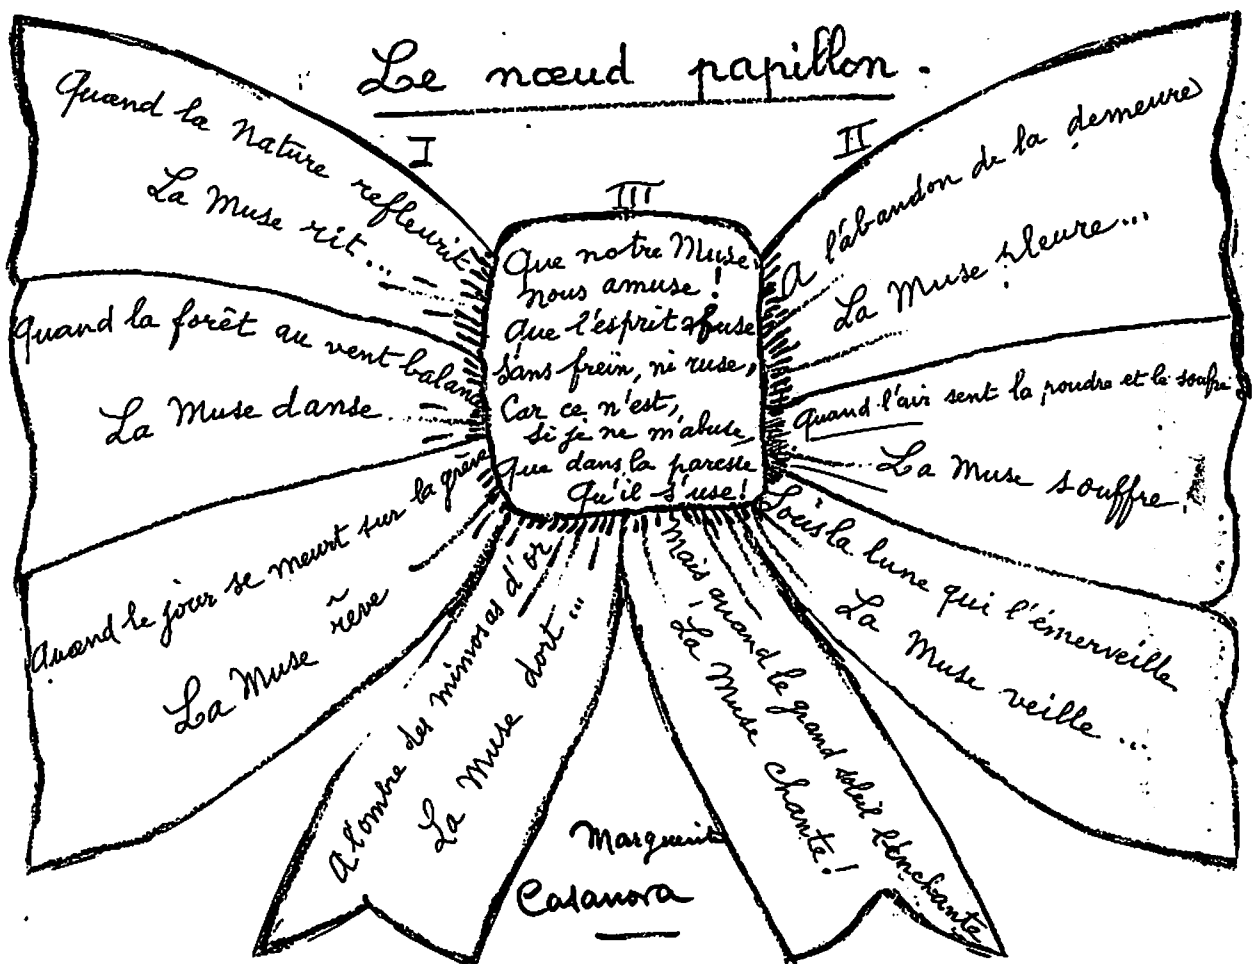 Le nœud papillon.
I
Quand la Nature refleurit
La Muse rit...
Quand la forêt au vent balance
La Muse danse...
Quand le jour se meurt sur la grève
La Muse rêve
A l'ombre des mimosas d'or
La Muse dort...
II
A l'abandon de la demeure
La Muse pleure...
Quand l'air sent la poudre et le souffre
La Muse souffre.
Sous la lune qui l'émerveille
La Muse veille...
Mais quand le grand soleil l'enchante
La Muse chante!
III
Que notre Muse
nous amuse!
Que l'esprit fuse
sans frein, ni ruse,
Car ce n'est,
si je ne m'abuse,
Que dans la paresse
Qu'il s'use!
Marguerite
Casanova